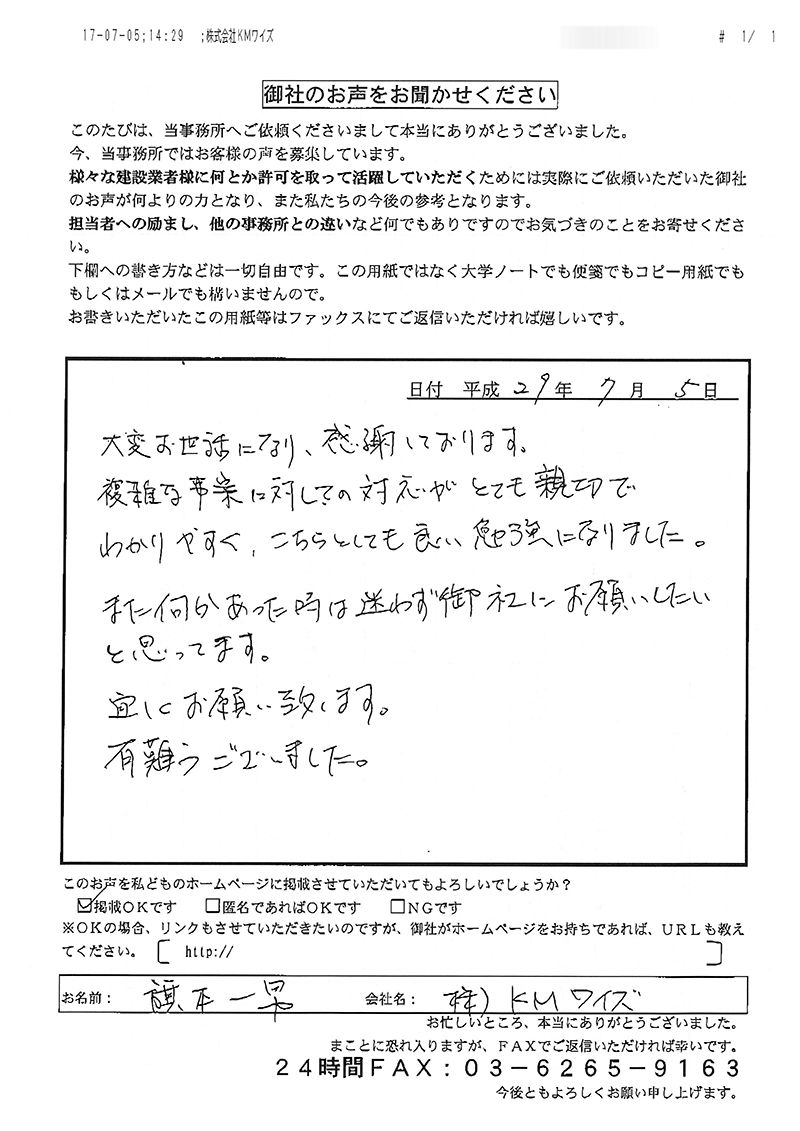 17-07-05;14:29 ;株式会社KMワイズ # 1/ 1
御社のお声をお聞かせください
このたびは、当事務所へご依頼くださいまして本当にありがとうございました。
今、当事務所ではお客様の声を募集しています。
様々な建設業者様に何とか許可を取って活躍していただくためには実際にご依頼いただいた御社
のお声が何よりの力となり、また私たちの今後の参考となります。
担当者への励まし、他の事務所との違いなど何でもありですのでお気づきのことをお寄せくださ
い。
下欄への書き方などは一切自由です。この用紙ではなく大学ノートでも便箋でもコピー用紙でも
もしくはメールでも構いませんので。
お書きいただいたこの用紙等はファックスにてご返信いただければ嬉しいです。
日付 平成 29年 7月 5日
大変お世話になり、感謝しております。
複雑な事案に対しての対応がとても親切で
わかりやすく、こちらとしても良い勉強になりました。
また何かあった時は迷わず御社にお願いしたい
と思ってます。
宜しくお願い致します。
有難うございました。
このお声を私どものホームページに掲載させていただいてもよろしいでしょうか？
☑掲載OKです □匿名であればOKです □NGです
※OKの場合、リンクもさせていただきたいのですが、御社がホームページをお持ちであれば、URLも教え
てください。[ http:// ]
お名前： 旗本一男 会社名： 株）KMワイズ
お忙しいところ、本当にありがとうございました。
まことに恐れ入りますが、FAXでご返信いただければ幸いです。
24時間FAX：03-6265-9163
今後ともよろしくお願い申し上げます。